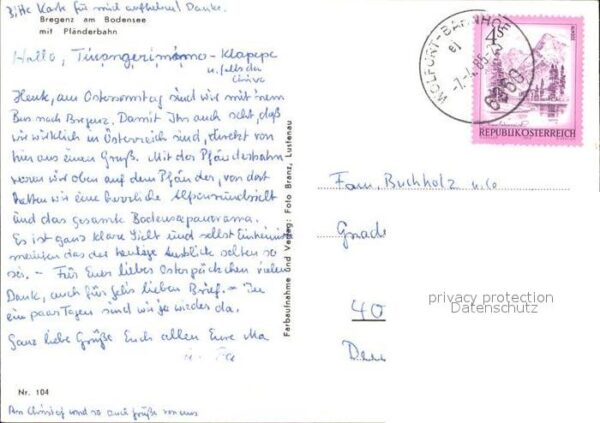 Bitte Karte für mich aufheben! Danke.
Bregenz am Bodensee
mit Pfänderbahn
Hallo,
u. falls der
Heute, am Ostersonntag sind wir mit 'nem
Bus nach Bregenz. Damit Ihr auch seht, daß
wir wirklich in Österreich sind, direkt von
hier aus einen Gruß. Mit der Pfänderbahn
waren wir oben auf dem Pfänder, von dort
hatten wir eine herrliche Alpenrundsicht
und das gesamte Bodenseepanorama.
Es ist ganz klare Sicht und selbst Einheimische
meinten das der heutige Ausblick selten so
sei. – Für Euer liebes Osterpäckchen vielen
Dank, auch für lieben Brief. – In
ein paar Tagen sind wir ja wieder da.
Ganz liebe Grüße Euch allen Eure Ma
Nr. 104
und so auch Grüße von uns
Farbaufnahme und Verlag: Foto Branz, Lustenau
WOLFURT-BAHNHOF
6960
4S
REPUBLIK ÖSTERREICH
Fam. Buchholz u. Co
Grade
40
privacy protection
Datenschutz